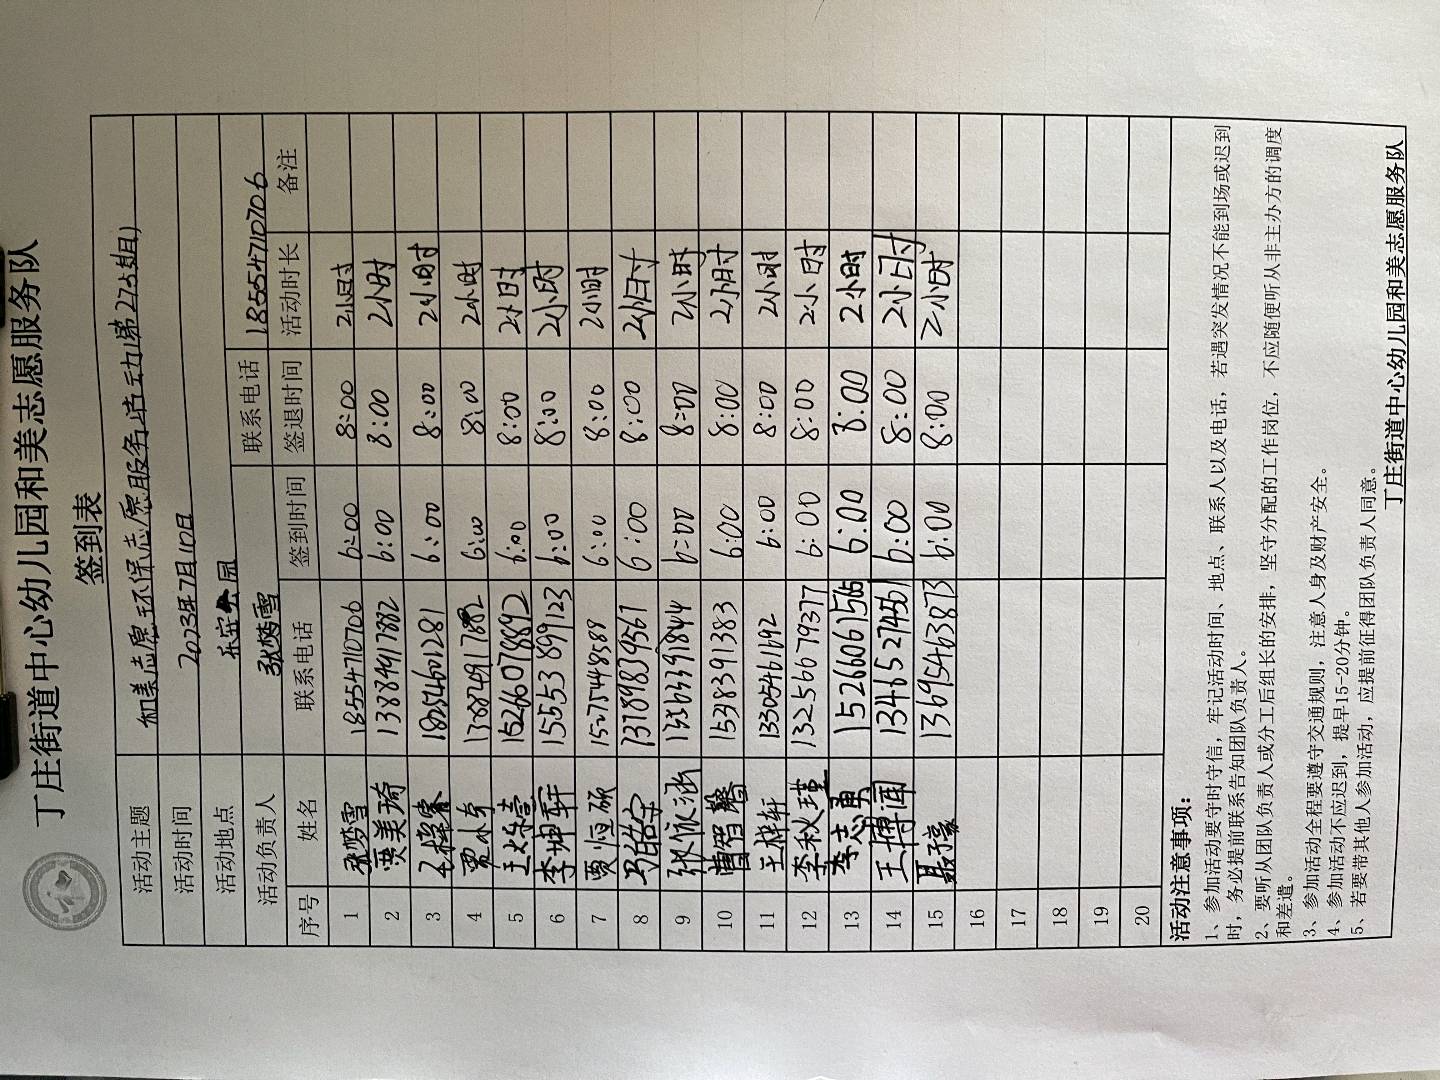 丁庄街道中心幼儿园和美志愿服务队
签到表
活动主题 和美志愿环保志愿服务活动
活动时间 2023年7月10日
活动地点 乐安公园
活动负责人 张梦雪 联系电话 18554710706
序号 姓名 联系电话 签到时间 签退时间 活动时长 备注
1 张梦雪 18554710706 6:00 8:00 2小时
2 贾美琦 13884917882 6:00 8:00 2小时
3 18254601281 6:00 8:00 2小时
4 6:00 8:00 2小时
5 15266078892 6:00 8:00 2小时
6 李坤轩 15553899123 6:00 8:00 2小时
7 贾恒硕 15275448589 6:00 8:00 2小时
8 13789839561 6:00 8:00 2小时
9 张依涵 15363391844 6:00 8:00 2小时
10 曹智馨 15383391383 6:00 8:00 2小时
11 王梓轩 13305461692 6:00 8:00 2小时
12 李秋瑾 13256679377 6:00 8:00 2小时
13 李志勇 15266061566 6:00 8:00 2小时
14 王博闻 13465274461 6:00 8:00 2小时
15 聂子豪 13695463873 6:00 8:00 2小时
16
17
18
19
20
活动注意事项：
1、参加活动要守时守信，牢记活动时间、地点、联系人以及电话，若遇突发情况不能到场或迟到
时，务必提前联系告知团队负责人。
2、要听从团队负责人或分工后组长的安排，坚守分配的工作岗位，不应随便听从非主办方的调度
和差遣。
3、参加活动全程要遵守交通规则，注意人身及财产安全。
4、参加活动不应迟到，提早15-20分钟。
5、若要带其他人参加活动，应提前征得团队负责人同意。
丁庄街道中心幼儿园和美志愿服务队